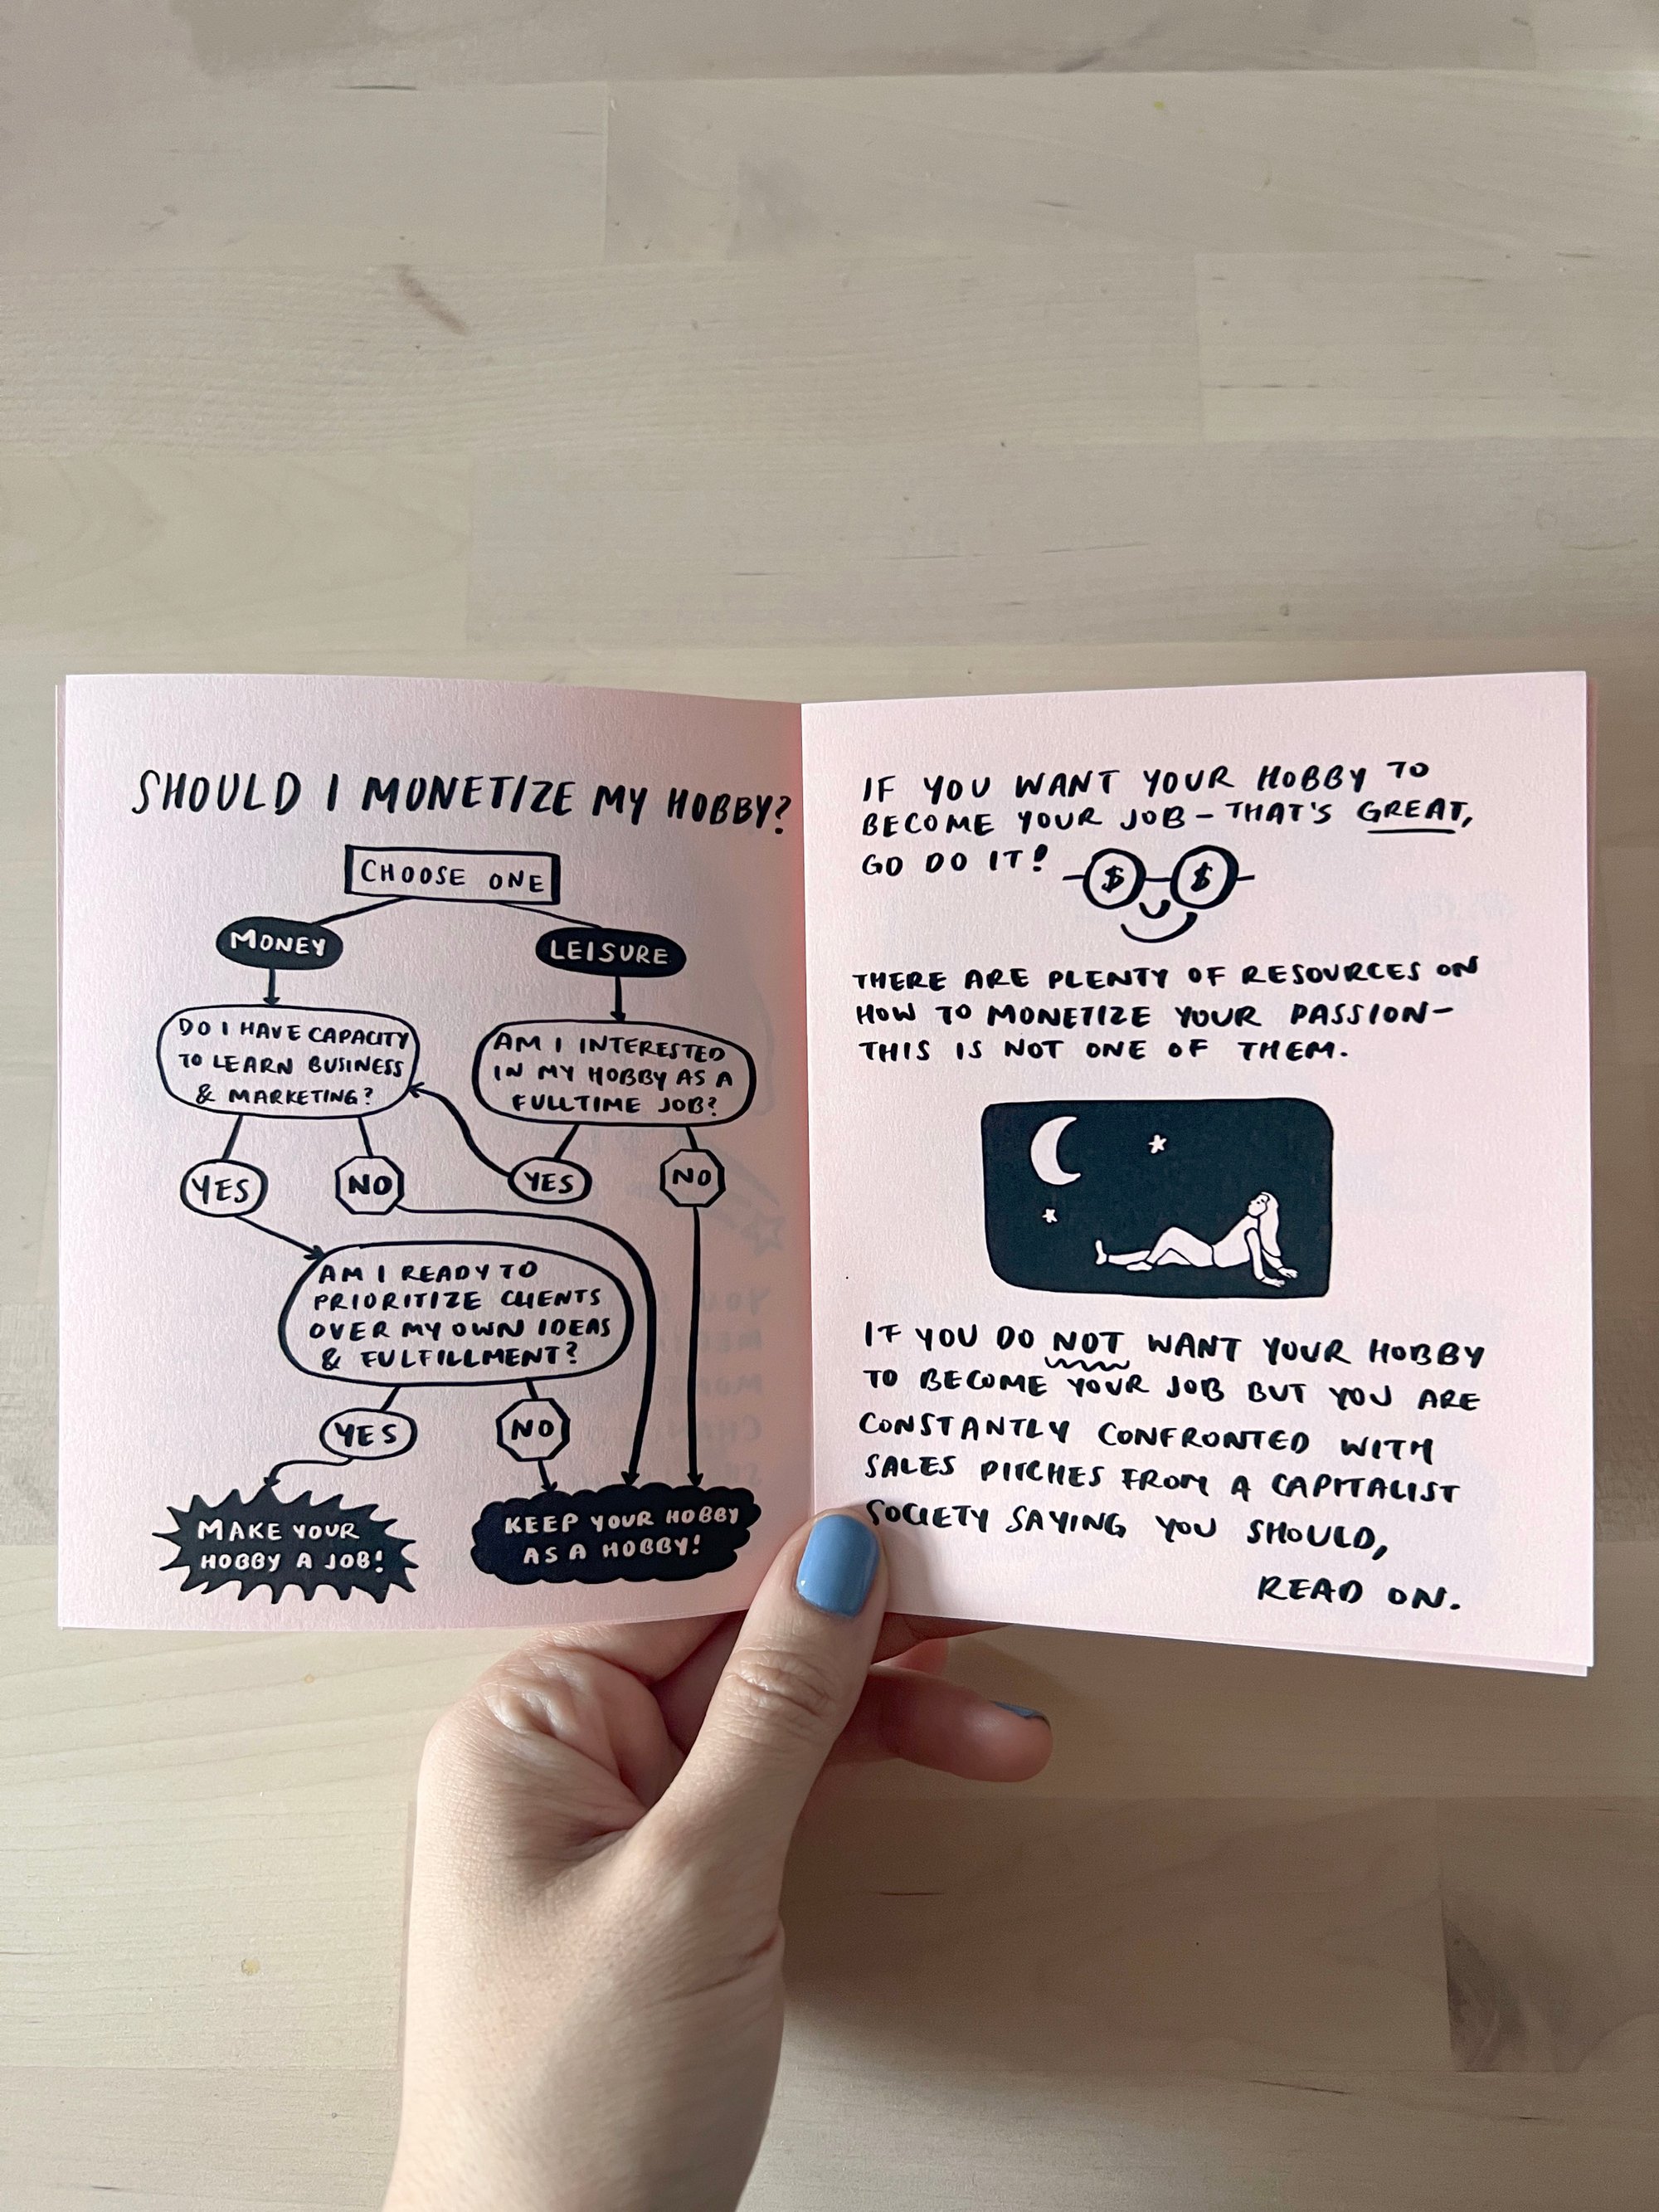 SHOULD I MONETIZE MY HOBBY?
CHOOSE ONE
MONEY
LEISURE
DO I HAVE CAPACITY
TO LEARN BUSINESS
& MARKETING?
AM I INTERESTED
IN MY HOBBY AS A
FULLTIME JOB?
YES
NO
YES
NO
AM I READY TO
PRIORITIZE CLIENTS
OVER MY OWN IDEAS
& FULFILLMENT?
YES
NO
MAKE YOUR
HOBBY A JOB!
KEEP YOUR HOBBY
AS A HOBBY!
IF YOU WANT YOUR HOBBY TO
BECOME YOUR JOB - THAT'S GREAT,
GO DO IT!
$ $
THERE ARE PLENTY OF RESOURCES ON
HOW TO MONETIZE YOUR PASSION-
THIS IS NOT ONE OF THEM.
IF YOU DO NOT WANT YOUR HOBBY
TO BECOME YOUR JOB BUT YOU ARE
CONSTANTLY CONFRONTED WITH
SALES PITCHES FROM A CAPITALIST
SOCIETY SAYING YOU SHOULD,
READ ON.